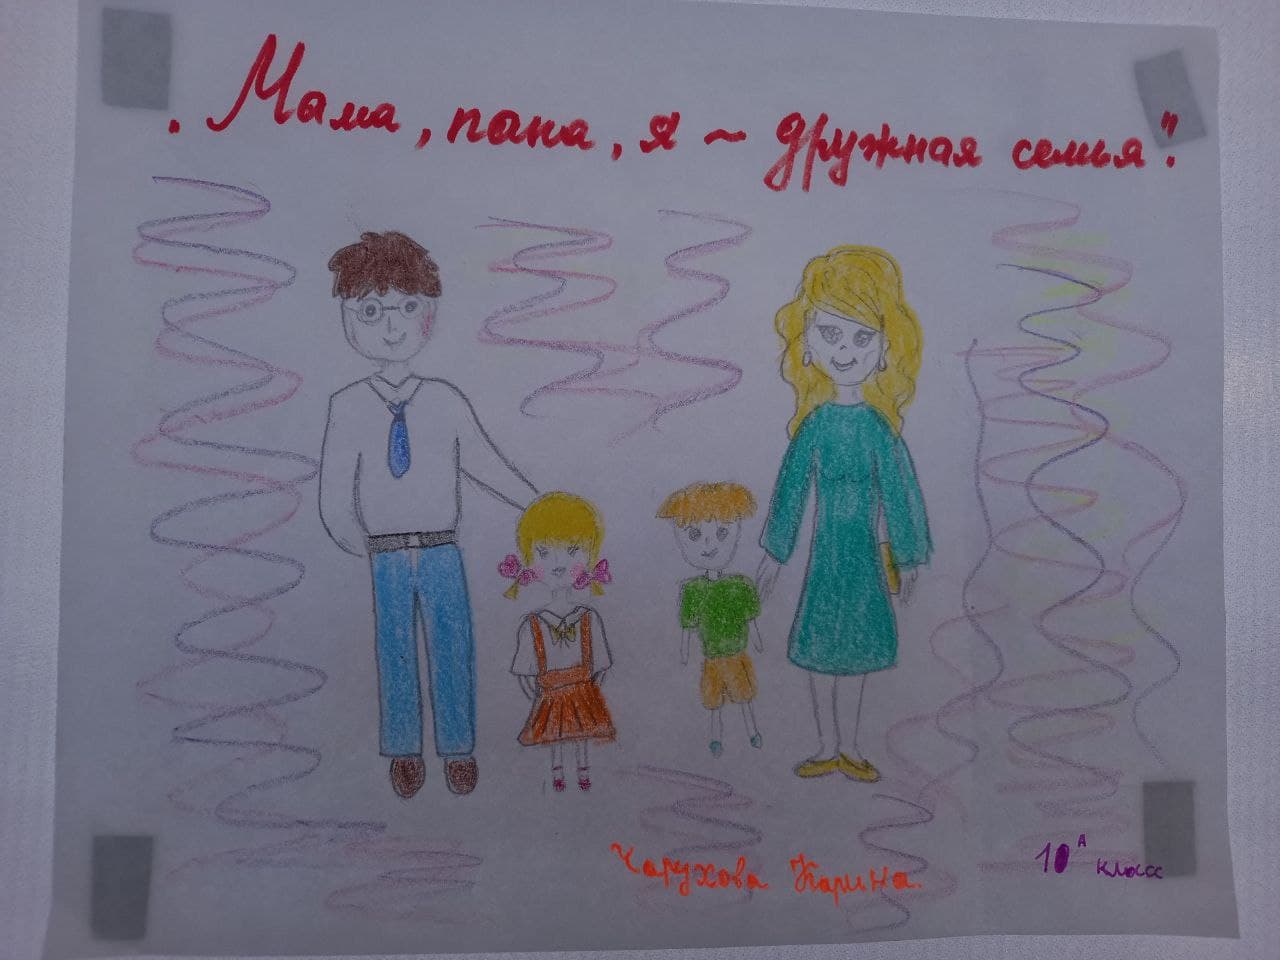 "Мама, папа, я ~ дружная семья".
Чарухова Карина.
10 А класс